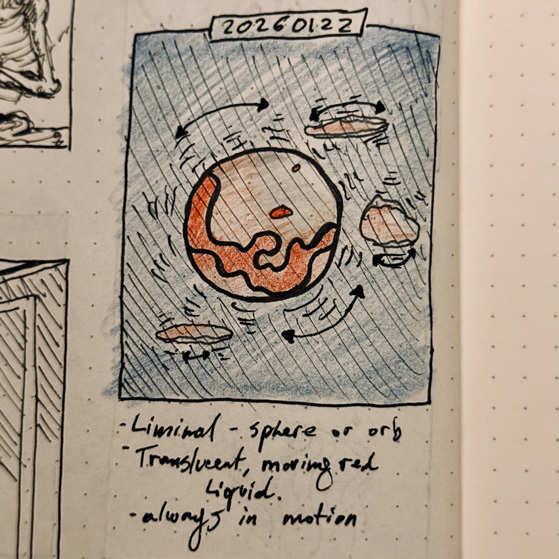 20260122
- Liminal - sphere or orb
- Translucent, moving red
Liquid.
- always in motion